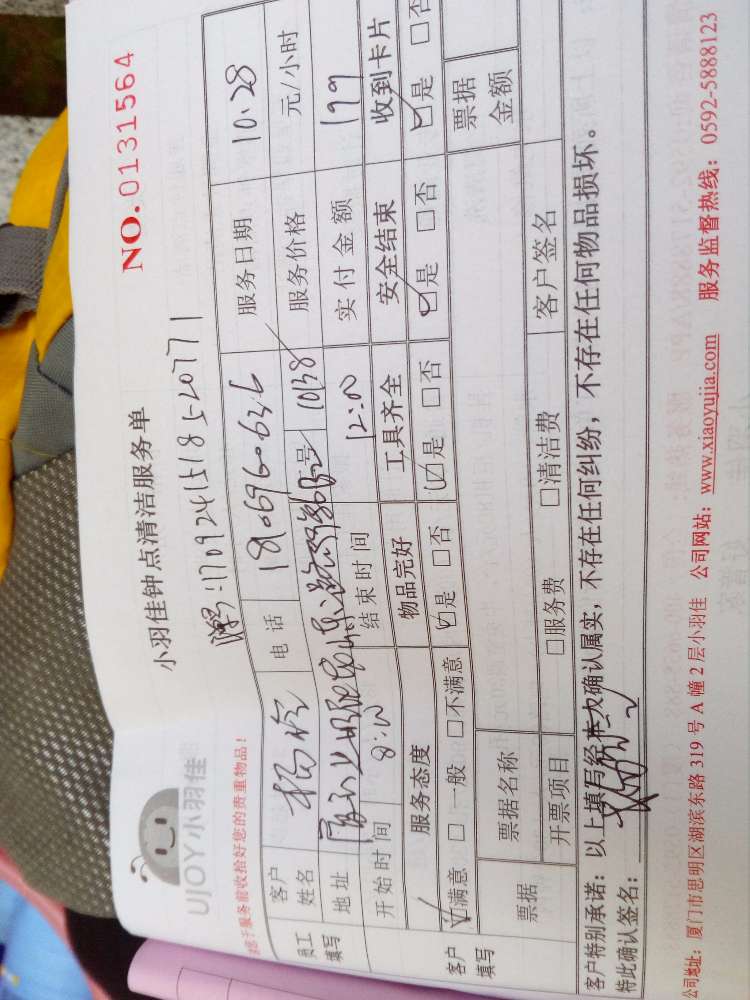 UJOY小羽佳
小羽佳钟点清洁服务单
NO.0131564
请于服务前收拾好您的贵重物品!
员工填写
客户姓名
电话
服务日期 10.28
地址
号
服务价格 元/小时
开始时间 8:00 结束时间 12:00 实付金额 199
客户填写
服务态度 物品完好 工具齐全 安全结束 收到卡片
☑满意 □一般 □不满意 ☑是 □否 ☑是 □否 ☑是 □否 ☑是 □否
票据 票据名称 票据金额
开票项目 □服务费 □清洁费 客户签名
客户特别承诺:以上填写经本次确认属实,不存在任何纠纷,不存在任何物品损坏。
特此确认签名:
公司地址:厦门市思明区湖滨东路 319 号 A 幢 2 层小羽佳 公司网站:www.xiaoyujia.com 服务监督热线:0592-5888123